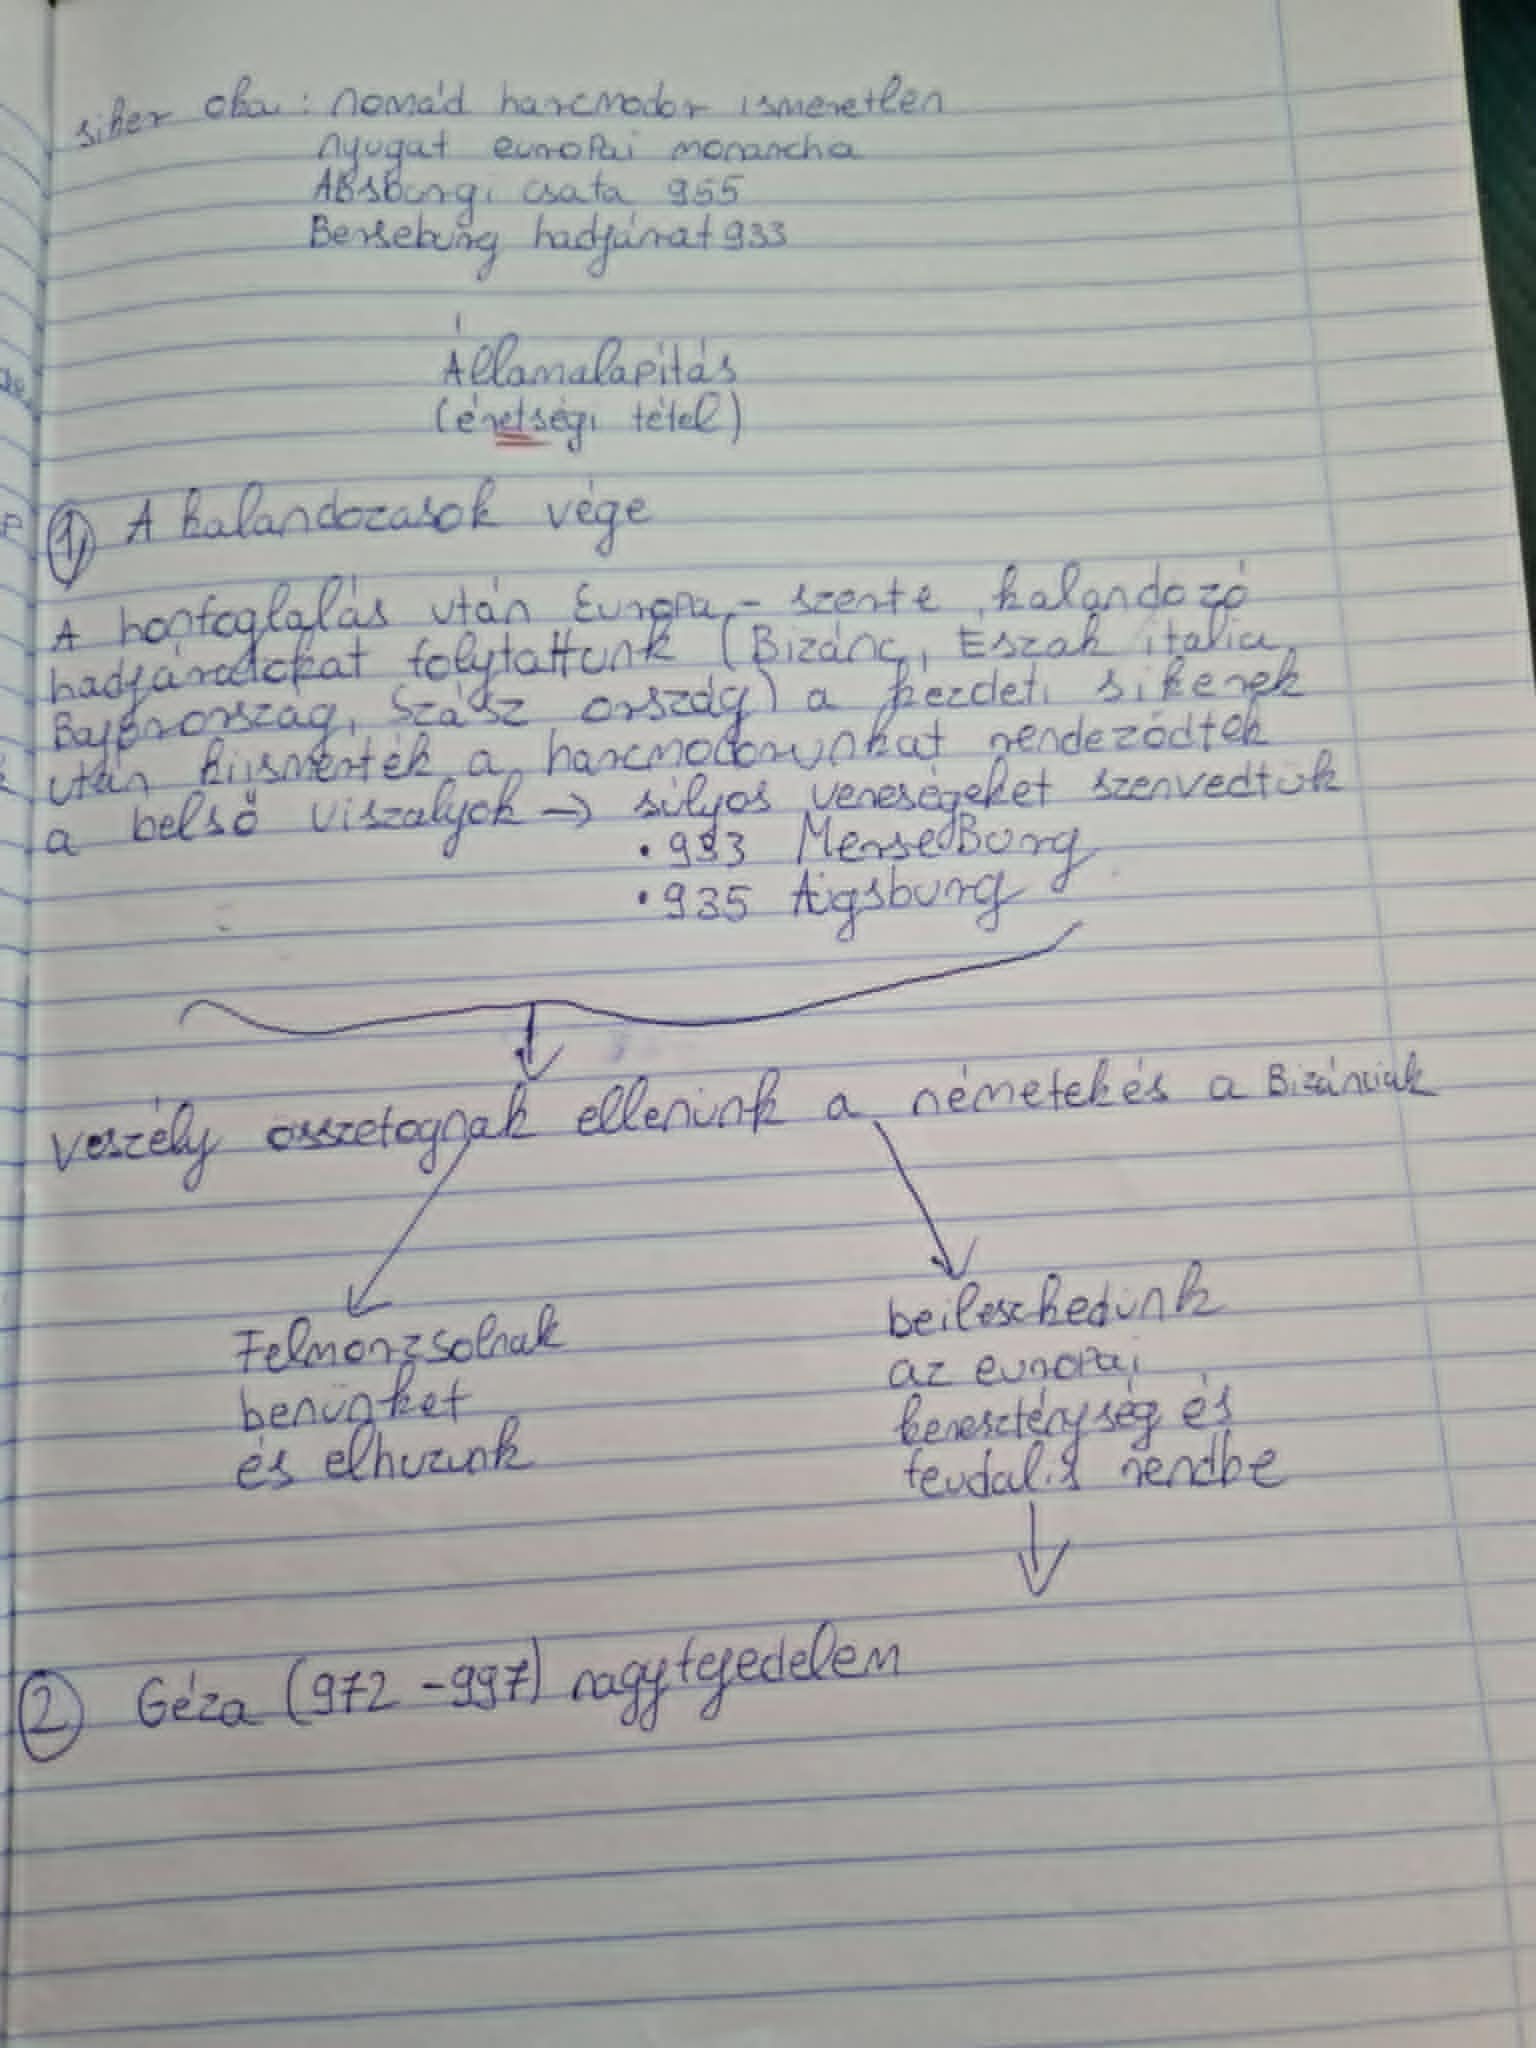 siker oka: nomád harcmodor ismeretlen
nyugat európai monarcha
ABsburgi csata 955
Berseburg hadjárat 933
Államalapítás
(érettségi tétel)
1, A kalandozások vége
A honfoglalás után Európa-szerte kalandozó
hadjáratokat folytattunk (Bizánc, Észak italia,
Bajorország, Szász ország) a kezdeti sikerek
után kiismerték a harcmodorunkat rendeződtek
a belső viszályok → súlyos vereségeket szenvedtük
• 933 MerseBurg
• 935 Aigsburg
veszély összefognak ellenünk a németek és a Bizánciak
Felmorzsolnak
benünket
és elhuzunk
beileszkedünk
az európai
kereszténység és
feudális rendbe
↓
2 Géza (972-997) nagyfejedelem